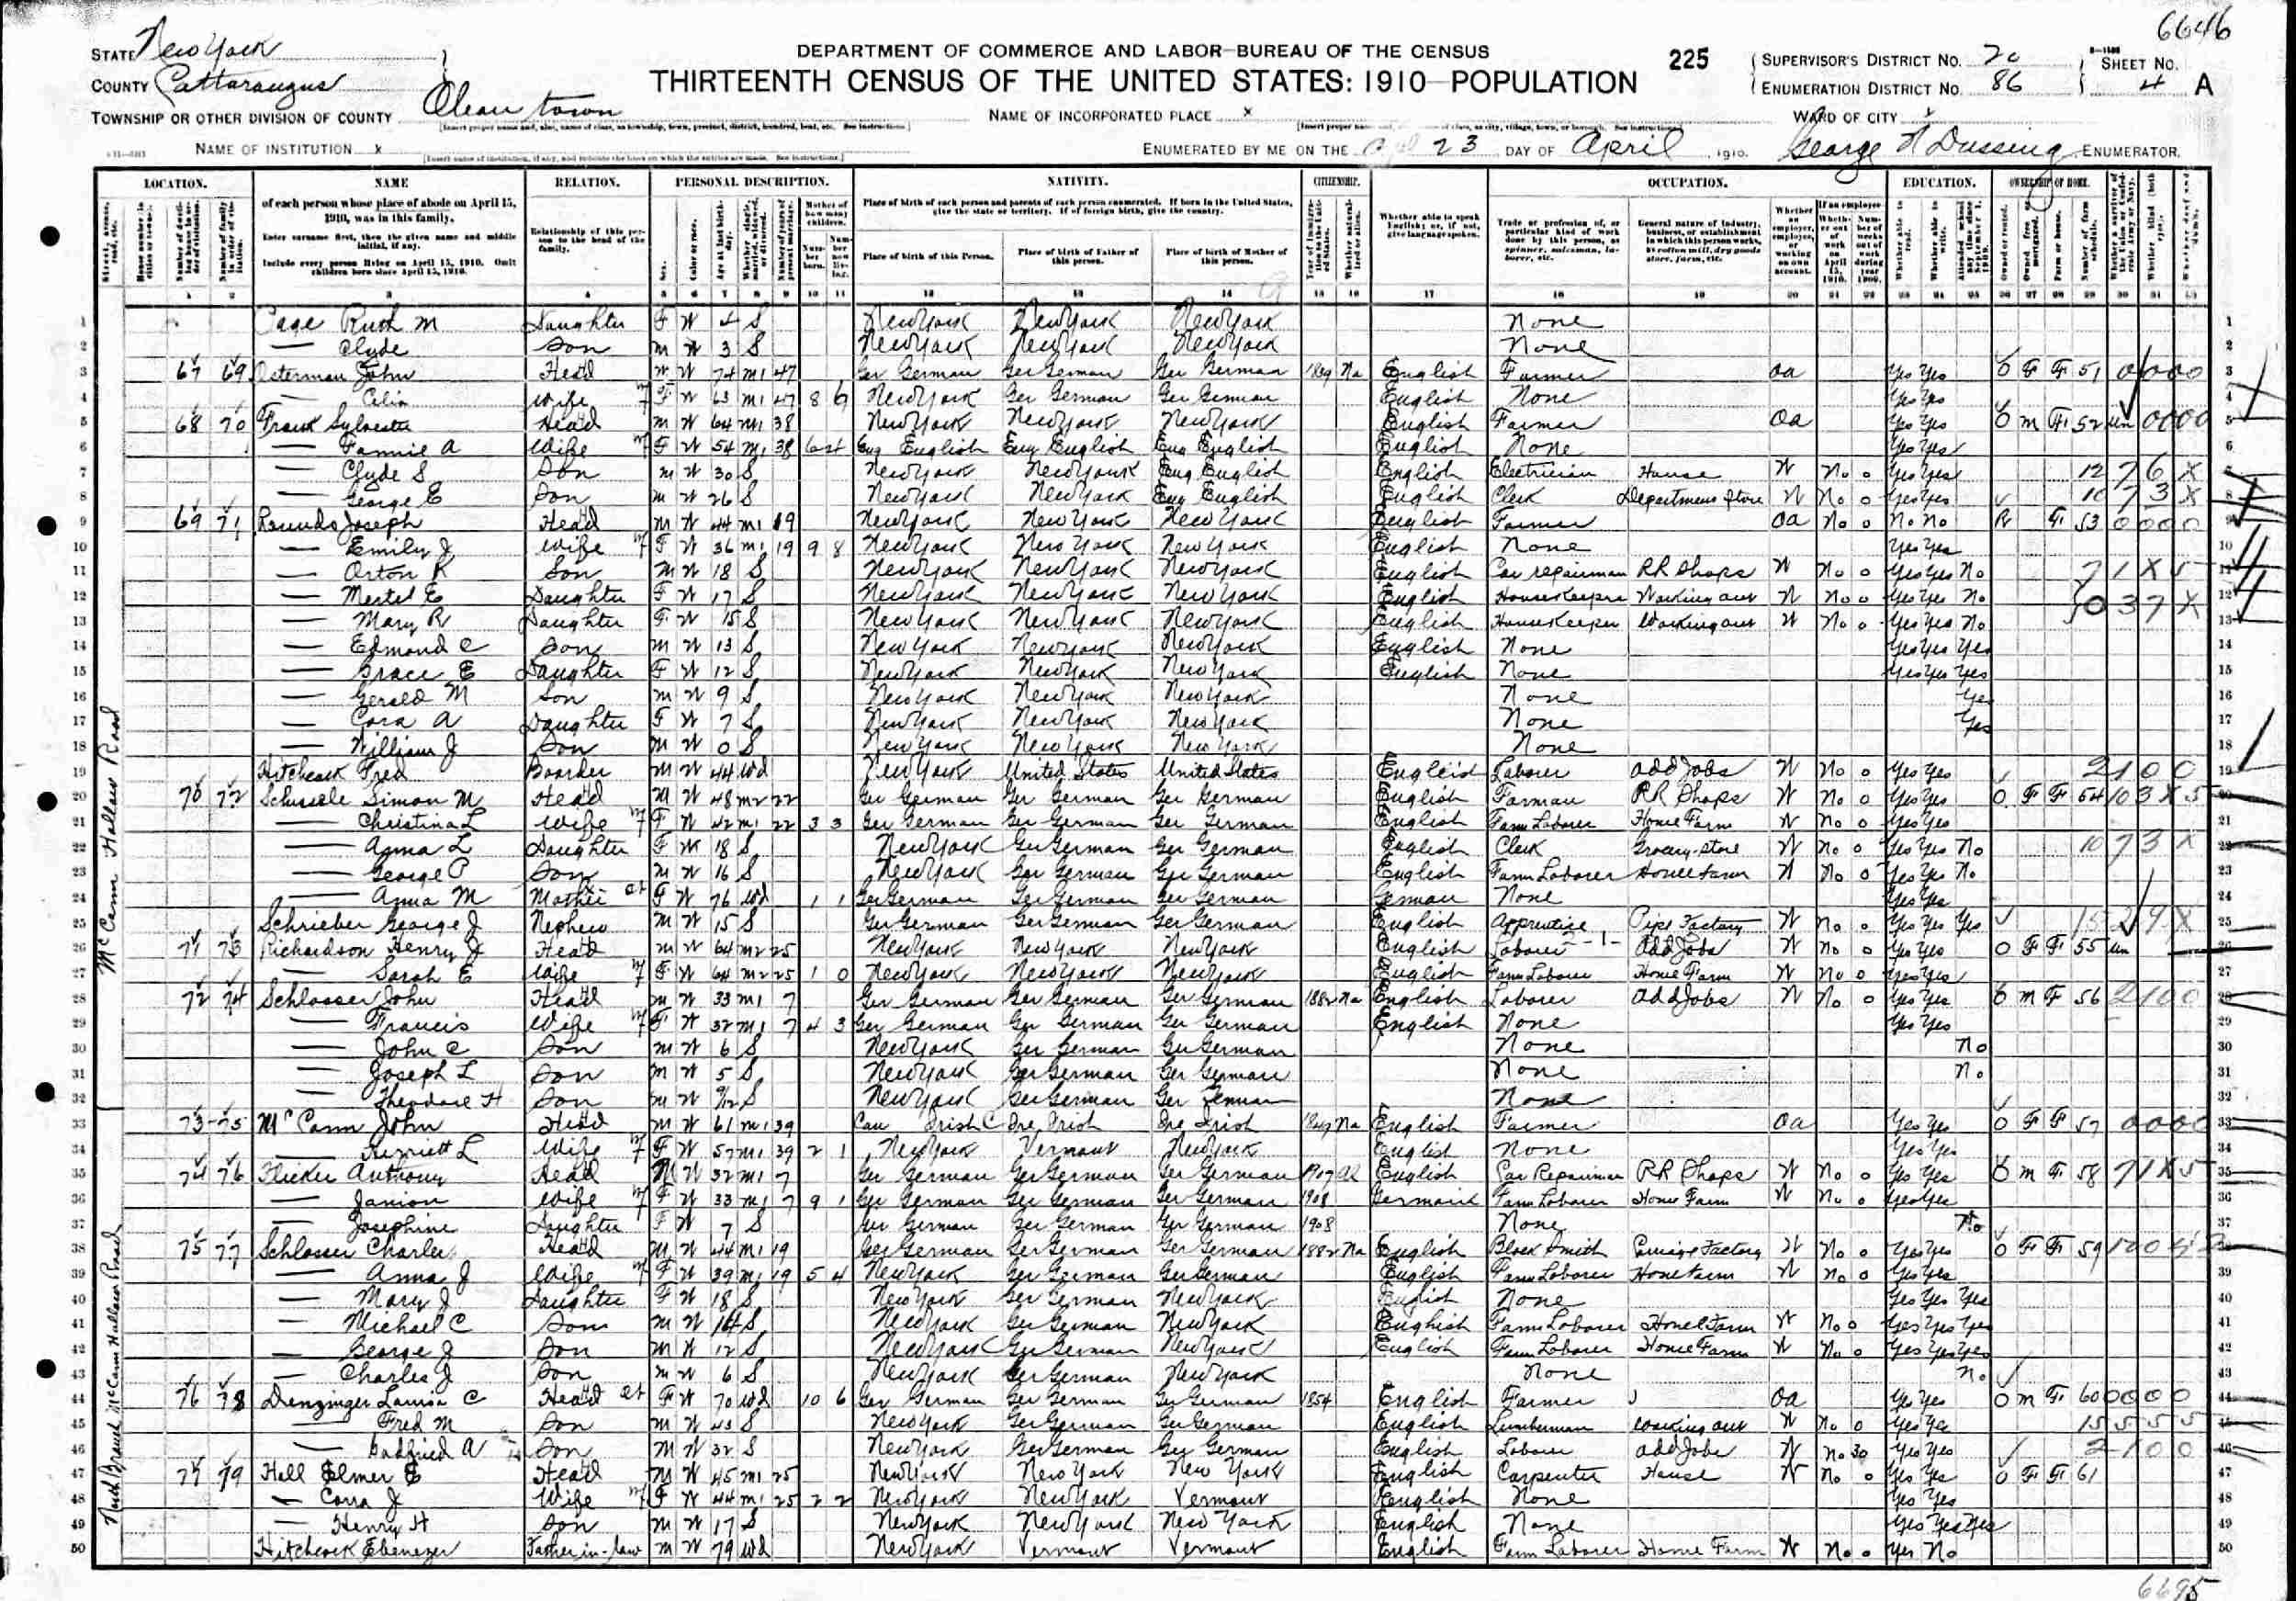 6646
STATE New York
DEPARTMENT OF COMMERCE AND LABOR—BUREAU OF THE CENSUS
225
SUPERVISOR'S DISTRICT No. 20
SHEET No.
COUNTY Cattaraugus
THIRTEENTH CENSUS OF THE UNITED STATES: 1910—POPULATION
ENUMERATION DISTRICT No. 86
4 A
TOWNSHIP OR OTHER DIVISION OF COUNTY Olean town
NAME OF INCORPORATED PLACE x
WARD OF CITY x
NAME OF INSTITUTION x
ENUMERATED BY ME ON THE 23 DAY OF April, 1910. George N Dussing, ENUMERATOR.
LOCATION. NAME RELATION. PERSONAL DESCRIPTION. NATIVITY. CITIZENSHIP. OCCUPATION. EDUCATION. OWNERSHIP OF HOME.
of each person whose place of abode on April 15, 1910, was in this family.
Enter surname first, then the given name and middle initial, if any.
Include every person living on April 15, 1910. Omit children born since April 15, 1910.
Relationship of this person to the head of the family.
Place of birth of this Person. Place of birth of Father of this person. Place of birth of Mother of this person.
McCann Hollow Road
1 Cage Ruth M Daughter F W 4 S New York New York New York None
2 — Clyde Son M W 3 S New York New York New York None
3 67 69 Osterman John Head M W 74 M1 47 Ger German Ger German Ger German Na English Farmer Oa Yes Yes O F F 51
4 — Celia Wife F W 63 M1 47 8 6 New York Ger German Ger German English None Yes Yes
5 68 70 Frank Sylvester Head M W 64 M1 38 New York New York New York English Farmer Oa Yes Yes O M F 52 un
6 — Fannie A Wife F W 54 M1 38 6 4 Eng English Eng English Eng English English None Yes Yes
7 — Clyde S Son M W 30 S New York New York Eng English English Electrician House W No 0 Yes Yes
8 — George E Son M W 26 S New York New York Eng English English Clerk Department Store W No 0 Yes Yes
9 69 71 Rounds Joseph Head M W 44 M1 19 New York New York New York English Farmer Oa No 0 No No R F 53
10 — Emily J Wife F W 36 M1 19 9 8 New York New York New York English None Yes Yes
11 — Orton K Son M W 18 S New York New York New York English Car repairman RR Shops W No 0 Yes Yes No
12 — Mertel E Daughter F W 17 S New York New York New York English Housekeeper Working out W No 0 Yes Yes No
13 — Mary R Daughter F W 15 S New York New York New York English Housekeeper Working out W No 0 Yes Yes No
14 — Edmond C Son M W 13 S New York New York New York English None Yes Yes Yes
15 — Grace E Daughter F W 12 S New York New York New York English None Yes Yes Yes
16 — Gerald M Son M W 9 S New York New York New York None Yes
17 — Cora A Daughter F W 7 S New York New York New York None Yes
18 — William J Son M W 0 S New York New York New York None
19 Hitchcock Fred Boarder M W 44 Wd New York United States United States English Laborer Odd Jobs W No 0 Yes Yes
20 70 72 Schissele Simon M Head M W 48 M2 22 Ger German Ger German Ger German English Farman RR Shops W No 0 Yes Yes O F F 54
21 — Christina L Wife F W 42 M1 22 3 3 Ger German Ger German Ger German English Farm Laborer Home Farm W No 0 Yes Yes
22 — Anna L Daughter F W 18 S New York Ger German Ger German English Clerk Grocery store W No 0 Yes Yes No
23 — George P Son M W 16 S New York Ger German Ger German English Farm Laborer Home Farm W No 0 Yes Yes No
24 — Anna M Mother F W 76 Wd 1 1 Ger German Ger German Ger German German None Yes Yes
25 Schrieber George J Nephew M W 15 S Ger German Ger German Ger German English Apprentice Pipe Factory W No 0 Yes Yes Yes
26 71 73 Richardson Henry J Head M W 64 M2 25 New York New York New York English Laborer Odd Jobs W No 0 Yes Yes O F F 55 un
27 — Sarah E Wife F W 64 M2 25 1 0 New York New York New York English Farm Laborer Home Farm W No 0 Yes Yes
28 72 74 Schlosser John Head M W 33 M1 7 Ger German Ger German Ger German 1882 Na English Laborer Odd Jobs W No 0 Yes Yes O M F 56 2100
29 — Francis Wife F W 32 M1 7 4 3 Ger German Ger German Ger German English None Yes Yes
30 — John C Son M W 6 S New York Ger German Ger German None No
31 — Joseph L Son M W 5 S New York Ger German Ger German None No
32 — Theodore H Son M W 9/12 S New York Ger German Ger German None
33 73 75 McCann John Head M W 61 M1 39 Can Irish Ire Irish Ire Irish Na English Farmer Oa Yes Yes O F F 57 0000
34 — Harriett L Wife F W 57 M1 39 2 1 New York Vermont New York English None Yes Yes
35 74 76 Flicker Anthony Head M W 32 M1 7 Ger German Ger German Ger German 1907 Al English Car Repairman RR Shops W No 0 Yes Yes O M F 58 71X5
36 — Janion Wife F W 33 M1 7 9 1 Ger German Ger German Ger German 1908 German Farm Laborer Home Farm W No 0 Yes Yes
37 — Josephine Daughter F W 7 S Ger German Ger German Ger German 1908 None No
38 75 77 Schlosser Charles Head M W 44 M1 19 Ger German Ger German Ger German 1882 Na English Black Smith Carriage Factory W No 0 Yes Yes O F F 59
39 — Anna J Wife F W 39 M1 19 5 4 New York Ger German Ger German English Farm Laborer Home Farm W No 0 Yes Yes
40 — Mary J Daughter F W 18 S New York Ger German New York English None Yes Yes Yes
41 — Michael C Son M W 14 S New York Ger German New York English Farm Laborer Home Farm W No 0 Yes Yes Yes
42 — George J Son M W 12 S New York Ger German New York English Farm Laborer Home Farm W No 0 Yes Yes Yes
43 — Charles J Son M W 6 S New York Ger German New York None No
44 76 78 Denzinger Louisa C Head F W 70 Wd 10 6 Ger German Ger German Ger German 1854 English Farmer Oa Yes Yes O M F 60 0000
45 — Fred M Son M W 43 S New York Ger German Ger German English Lumberman working out W No 0 Yes Yes 1555
46 — Godfried A Son M W 32 S New York Ger German Ger German English Laborer Odd Jobs W No 30 Yes Yes 2100
47 77 79 Hall Elmer E Head M W 45 M1 25 New York New York New York English Carpenter House W No 0 Yes Yes O F F 61
48 — Cora J Wife F W 44 M1 25 2 2 New York New York Vermont English None Yes Yes
49 — Henry H Son M W 17 S New York New York New York English None Yes Yes Yes
50 Hitchcock Ebenezer Father in-law M W 79 Wd New York Vermont Vermont English Farm Laborer Home Farm W No 0 Yes No
6695